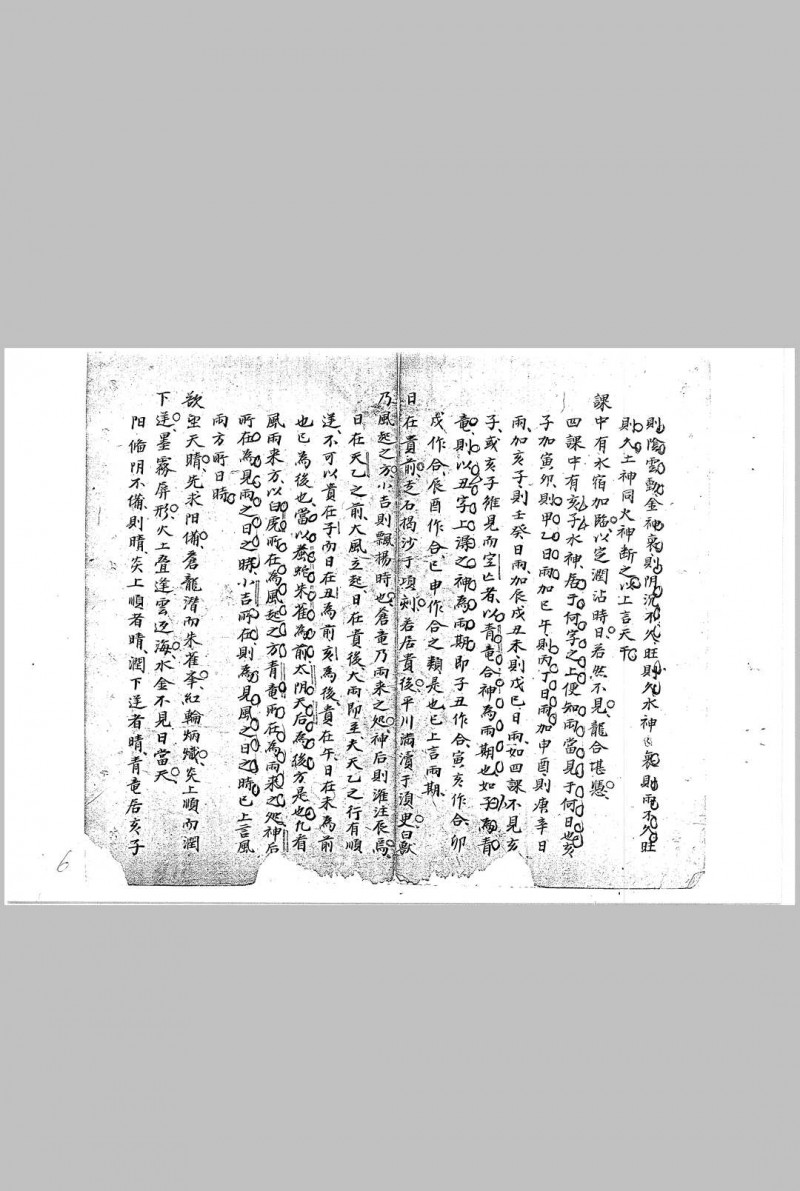 則陰雲動金神衰則阴沉水久旺則久水神
衰則雨不久旺
則久土神同火神断之以上言天干
課中有水宿加臨以定潤沾時日若然不見龍合堪懸
四課中有亥子水神居于何字之上便知雨當見于何日也亥
子加寅卯則甲乙日雨加巳午則丙丁日雨加申酉則庚辛日
雨加亥子則壬癸日雨加辰戌丑未則戊己日雨如四課不見亥
子或亥子雖見而空亡者以青竜合神為雨期也如子為青
竜則以丑字上淂之神為雨期即子丑作合寅亥作合卯
戌作合辰酉作合巳申作合之類是也已上言雨期
日在貴前走石揚沙于項刻若居貴後平川滿瀆于湏史日馭
乃風起之方小吉則飄揚時也倉竜乃雨来之処神后則滙注辰焉
日在天乙之前大風立起日在貴後大雨即至夫天乙之行有順
逆不可以貴在子而日在丑為前亥為後貴在午日在未為前
也巳為後也當以螣蛇朱雀為前太阴天后為後方是也凢看
風雨来方以白虎所在為風起之方青竜所在為雨来之処神后
所在為見雨之日之時小吉所在則為見風之日之時已上言風
雨方所日時
欲望天晴先求阳備蒼龍潛而朱雀峯紅輪炳熾炎上順而潤
下逆墨霧屏形火上叠逢雲迈海水金不見日當天
阳偹阴不備則晴炎上順者晴潤下逆者晴青竜居亥子
6